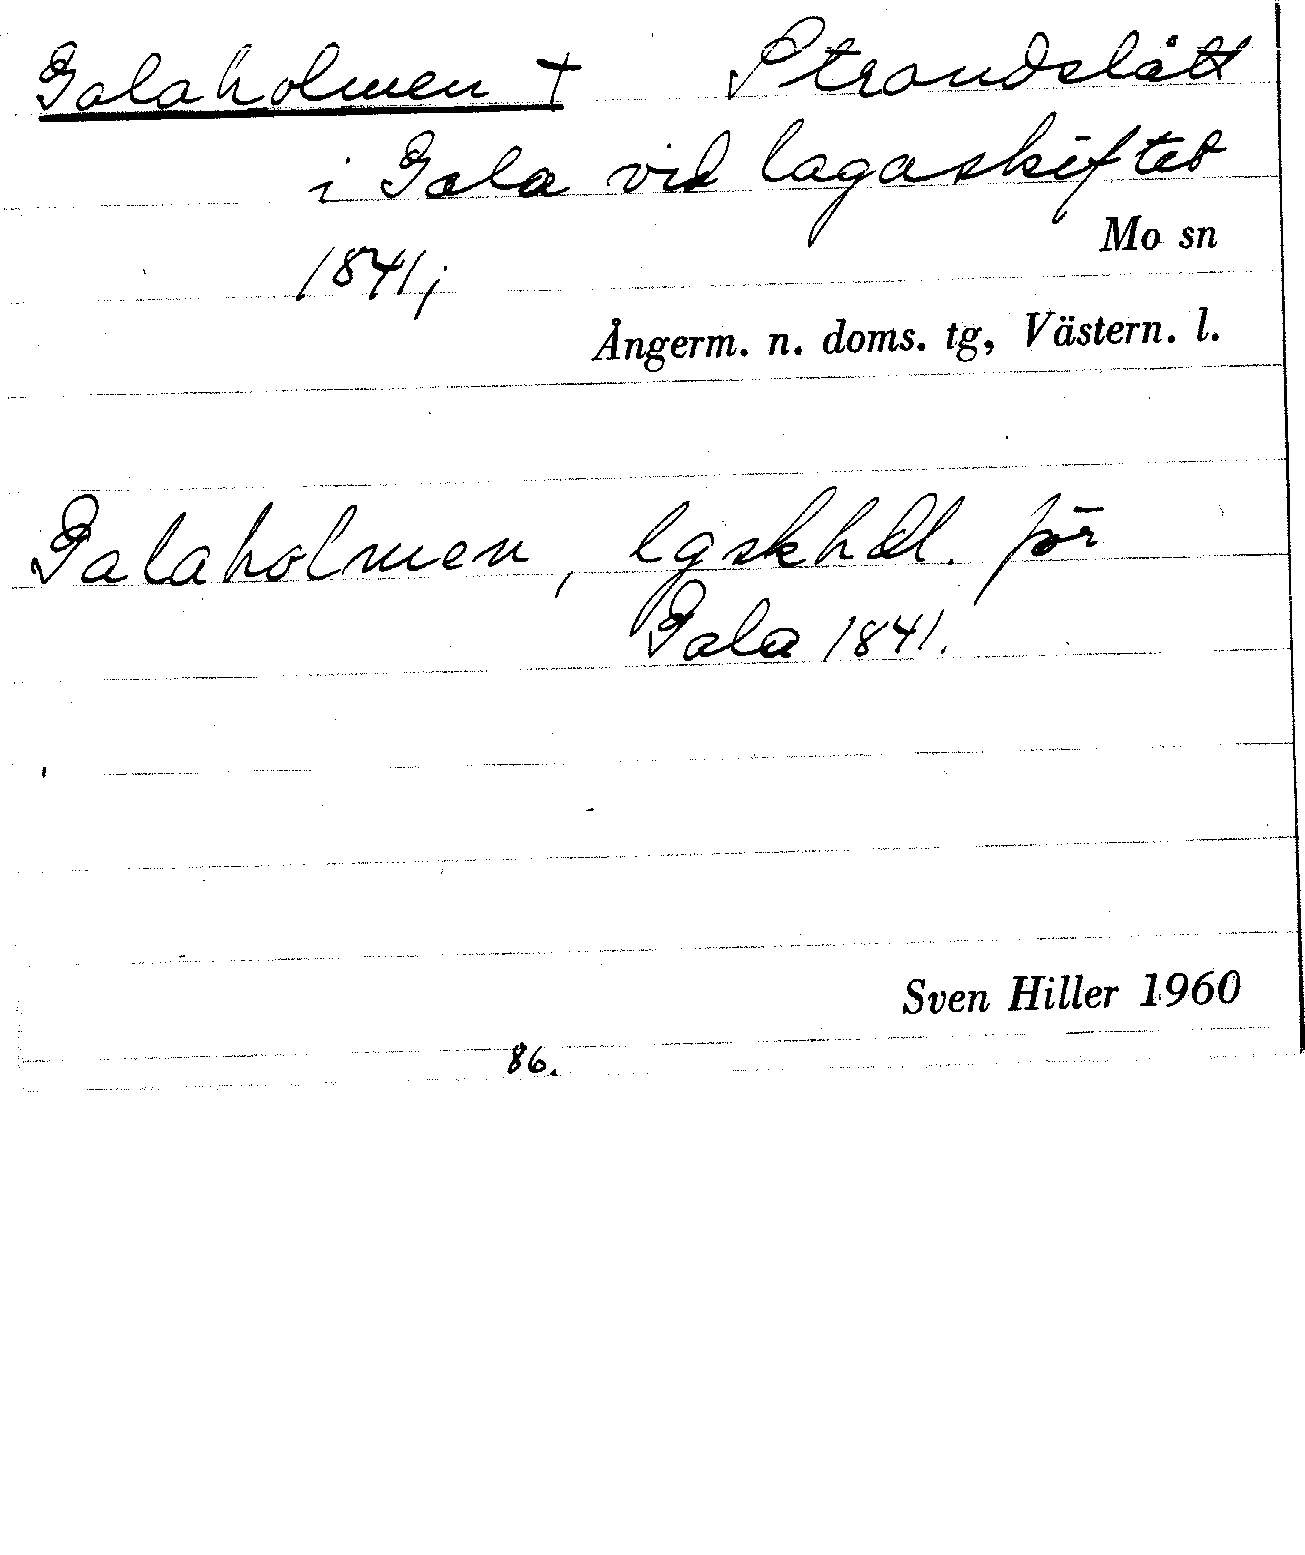 Galaholmen † Strandslått
i Gala vid lagaskiftet
Mo sn
1841;
Ångerm. n. doms. tg, Västern. l.
Galaholmen, lgskhdl. för
Gala 1841.
Sven Hiller 1960
86.